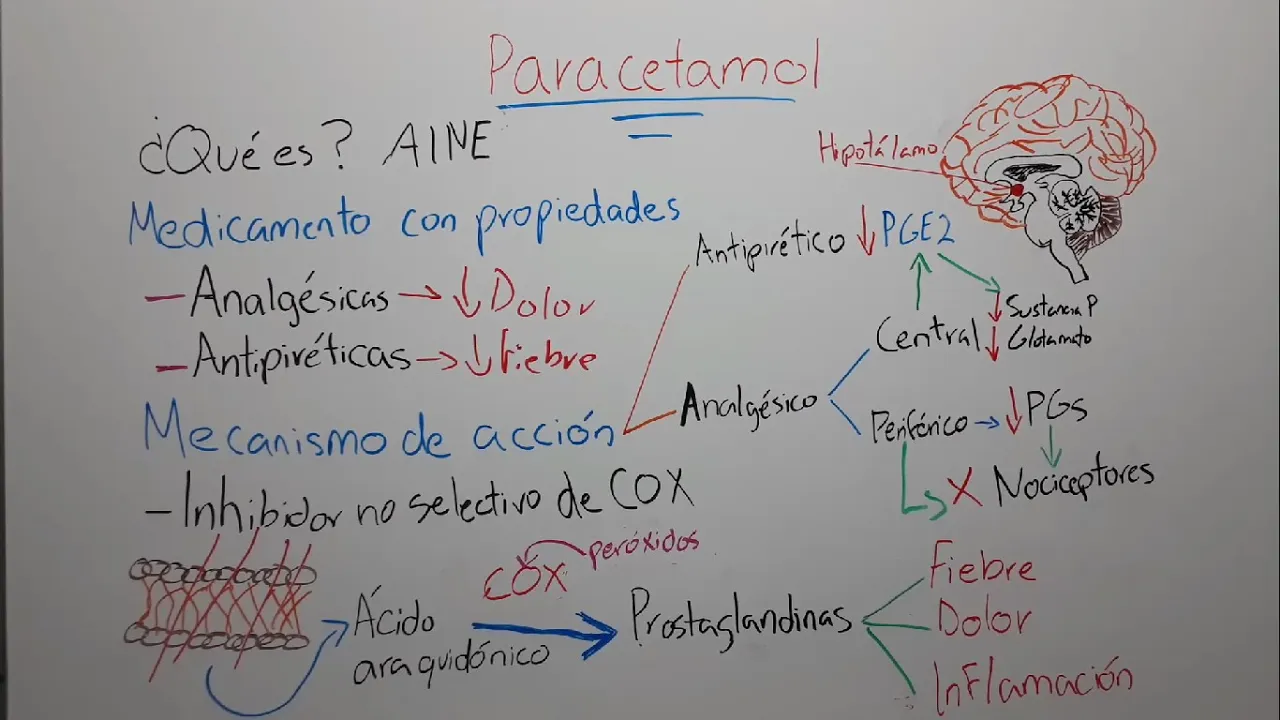 Paracetamol
¿Qué es? AINE
Medicamento con propiedades
- Analgésicas → ↓ Dolor
- Antipiréticas → ↓ Fiebre
Mecanismo de acción
- Inhibidor no selectivo de COX
Hipotálamo
Antipirético ↓ PGE2
Analgésico
Central
↓ Sustancia P
↓ Glutamato
Periférico → ↓ PGs
X Nociceptores
Ácido
araquidónico
COX
peróxidos
Prostaglandinas
Fiebre
Dolor
Inflamación